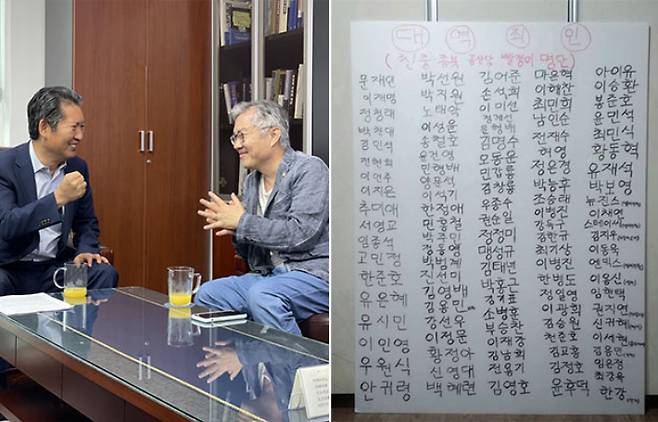 대 역 죄 인
(친중·종북 공산당 빨갱이 명단)
문재인 박선원 김어준 마은혁 아이유
이재명 박지원 손석희 이해찬 이승환
정청태 노태악 이미선 최민희 봉준호
박찬대 이상윤 정계선 남인순 문민석
김민석 송철호 문형배 전재수 최민식
전현희 윤건영 김명수 허영 황동혁
이언주 민형배 모동운 정은경 유재석
이지은 양문석 민갑룡 박능후 박보영
추미애 이석기 김창룡 조승래 뉴진스
서영교 한정애 우종수 이병진 이채연
임종석 민홍철 권순일 강득구 스테이씨
고민정 박주민 정정미 김한규 김지우
한준호 정동영 맹성규 최기상 이동욱
유은혜 박범계 김태년 이병진 엔믹스
유시민 진선미 박홍근 한병도 이용선
이인영 김영배 김기표 정일영 임헌택
우원식 윤종오 소병훈 이광희 권지연
안귀령 강선우 부승찬 김승원 신규혜
이정문 이재강 천준호 이서현
황정아 김남희 김교흥 김용민
신영대 전용기 김정호 임은정
백혜련 김영호 윤후덕 최강욱
한강